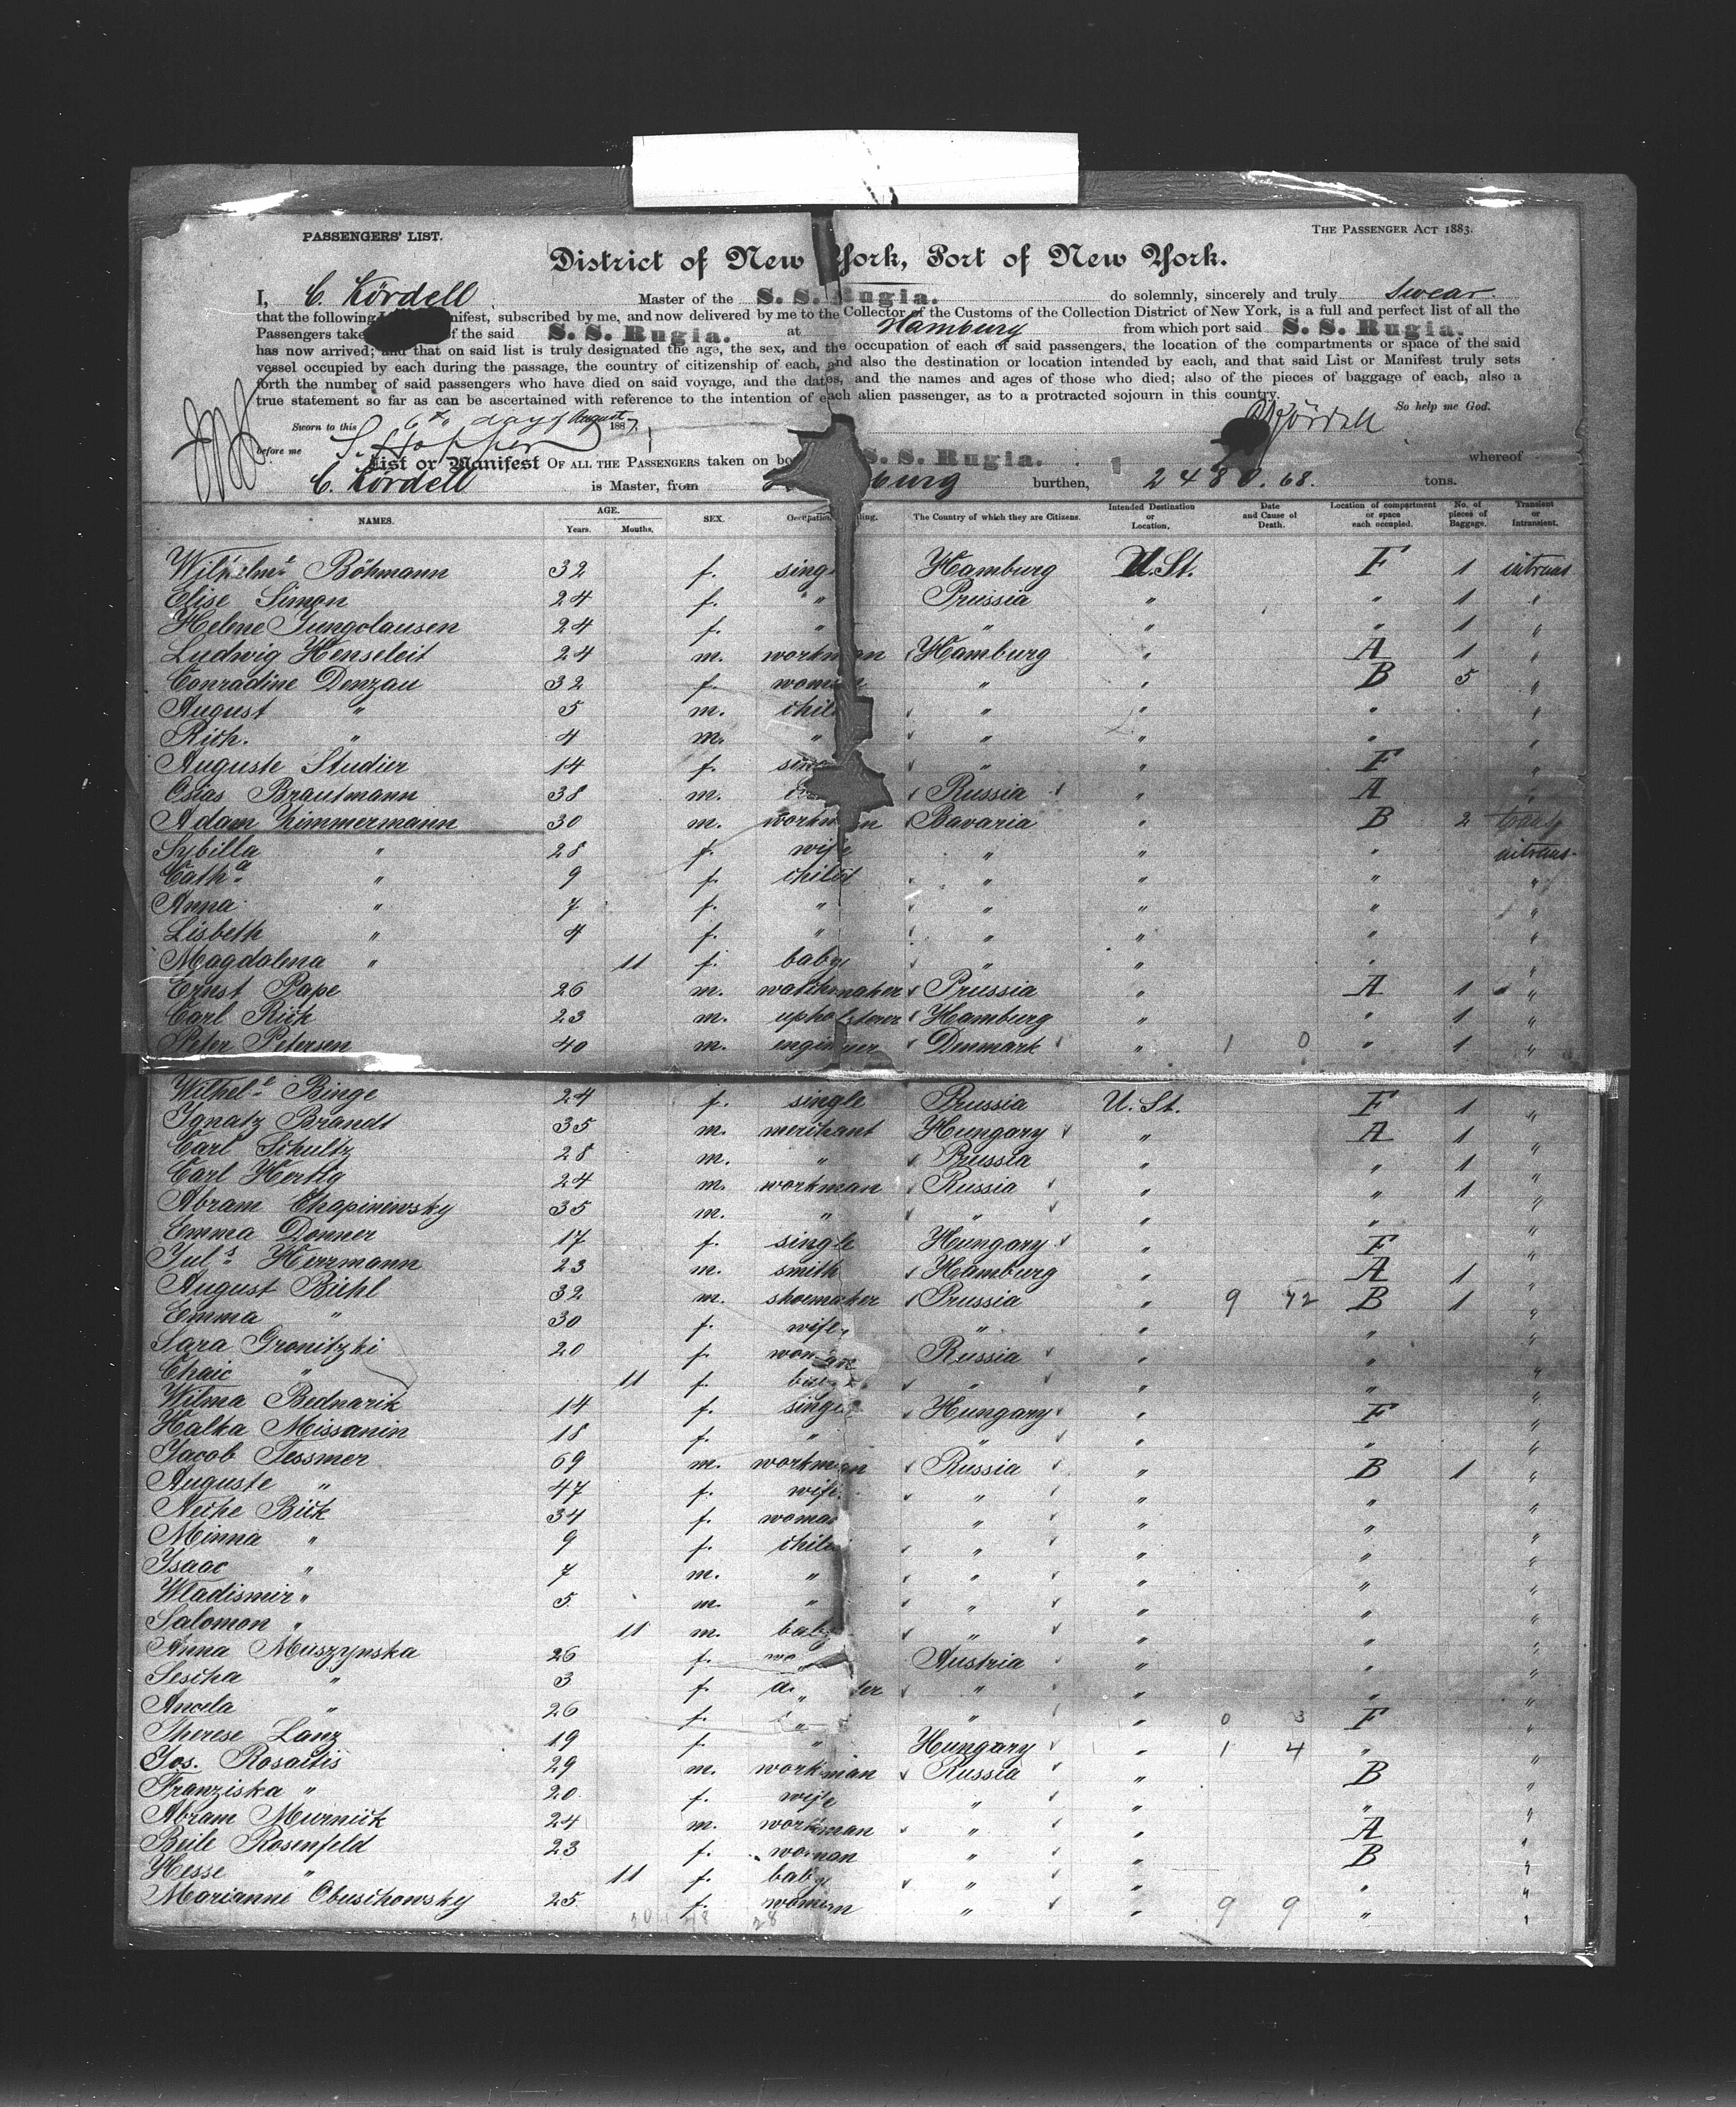 PASSENGERS' LIST. THE PASSENGER ACT 1883.
District of New York, Port of New York.
I, C. Kördell Master of the S. S. Rugia. do solemnly, sincerely and truly swear.
that the following nifest, subscribed by me, and now delivered by me to the Collector of the Customs of the Collection District of New York, is a full and perfect list of all the
Passengers take f the said S. S. Rugia. at Hamburg from which port said S. S. Rugia.
has now arrived; and that on said list is truly designated the age, the sex, and the occupation of each of said passengers, the location of the compartments or space of the said
vessel occupied by each during the passage, the country of citizenship of each, and also the destination or location intended by each, and that said List or Manifest truly sets
forth the number of said passengers who have died on said voyage, and the dates, and the names and ages of those who died; also of the pieces of baggage of each, also a
true statement so far as can be ascertained with reference to the intention of each alien passenger, as to a protracted sojourn in this country.
So help me God.
Sworn to this 6th day of August 1887, Kördell
before me S. Hopper
List or Manifest OF ALL THE PASSENGERS taken on bo S. S. Rugia. whereof
C. Kördell is Master, from burg burthen, 2480.68. tons.
NAMES. AGE. Years. Months. SEX. Occupation ling. The Country of which they are Citizens. Intended Destination or Location. Date and Cause of Death. Location of compartment or space each occupied. No. of pieces of Baggage. Transient or Intransient.
Wilhelm.e Böhmann 32 f. sing Hamburg U.St. F 1 intrans
Elise Simon 24 f. " " Prussia " " 1 "
Helene Jungclausen 24 f. " " " " 1 "
Ludwig Henseleit 24 m. workman Hamburg " A 1 "
Conradine Denzau 32 f. woman " " B 5 "
August " 5 m. chil " " " "
Rich. " 4 m. " " " " "
Auguste Studier 14 f. sing " " F "
Osias Brautmann 38 m. Russia " A "
Adam Zimmermann 30 m. workman Bavaria " B 2
Sybilla " 28 f. wife " " " intrans.
Cath.a " 9 f. child " " " "
Anna " 7 f. " " " " "
Lisbeth " 4 f. " " " " "
Magdalena " 11 f. baby " " " "
Ernst Pape 26 m. watchmaker Prussia " A 1 "
Carl Rick 23 m. upholsterer Hamburg " " 1 "
Peter Petersen 40 m. engineer Denmark " 1 0 " 1 "
Wilhel.e Binge 24 f. single Prussia U. St. F 1 "
Ignatz Brandt 35 m. merchant Hungary " A 1 "
Carl Schultz 28 m. " Prussia " " 1 "
Carl Hertig 24 m. workman Russia " " 1 "
Abram Chapinewsky 35 m. " " " " "
Emma Donner 17 f. single Hungary " F "
Jul.s Herrmann 23 m. smith Hamburg " A 1 "
August Biehl 32 m. shoemaker Prussia " 9 72 B 1 "
Emma " 30 f. wife " " " "
Sara Gronitzki 20 f. woman Russia " " "
Chaie " 11 f. " " " "
Wilma Bednarik 14 f. single Hungary " F "
Halka Missanin 18 f. " " " " "
Jacob Tessmer 69 m. workman Russia " B 1 "
Auguste " 47 f. wife " " " "
Neche Bick 34 f. woman " " " "
Minna " 9 f. child " " " "
Isaac " 7 m. " " " " "
Wladismir " 5 m. " " " " "
Salomon " 11 m. baby " " " "
Anna Muszynska 26 f. wo Austria " " "
Sescha " 3 f. d ter " " " "
Angela " 26 f. " " " 0 3 F "
Therese Lanz 19 f. " Hungary " 1 4 " "
Jos. Rosaitis 29 m. workman Russia " B "
Franziska " 20 f. wife " " " "
Abram Murnick 24 m. workman " " A "
Beile Rosenfeld 23 f. woman " " B "
Hesse " 11 f. baby " " " "
Marianne Obuschowsky 25 f. woman " " 9 9 " "